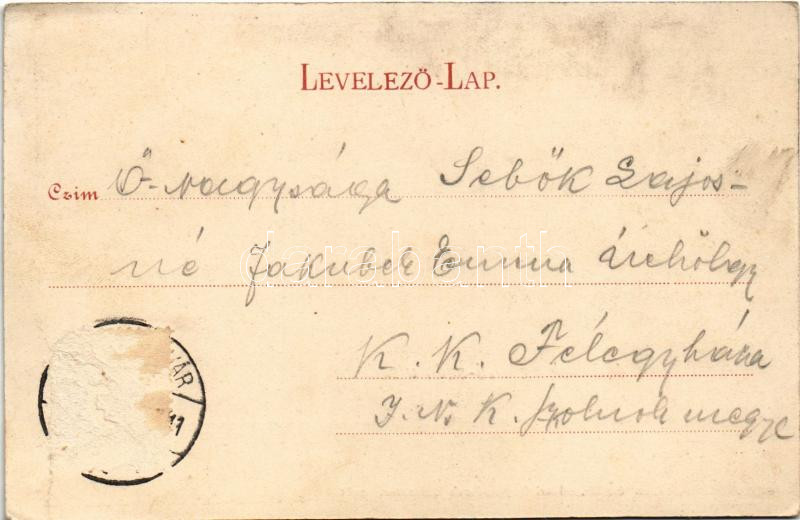 LEVELEZŐ-LAP.
Czim Ő-Nagysága Sebők Lajos-
né Jakuber Emma Úrhölgy
K. K. Félegyháza
J. N. K. Szolnok megye
VÁR
11
darabanth